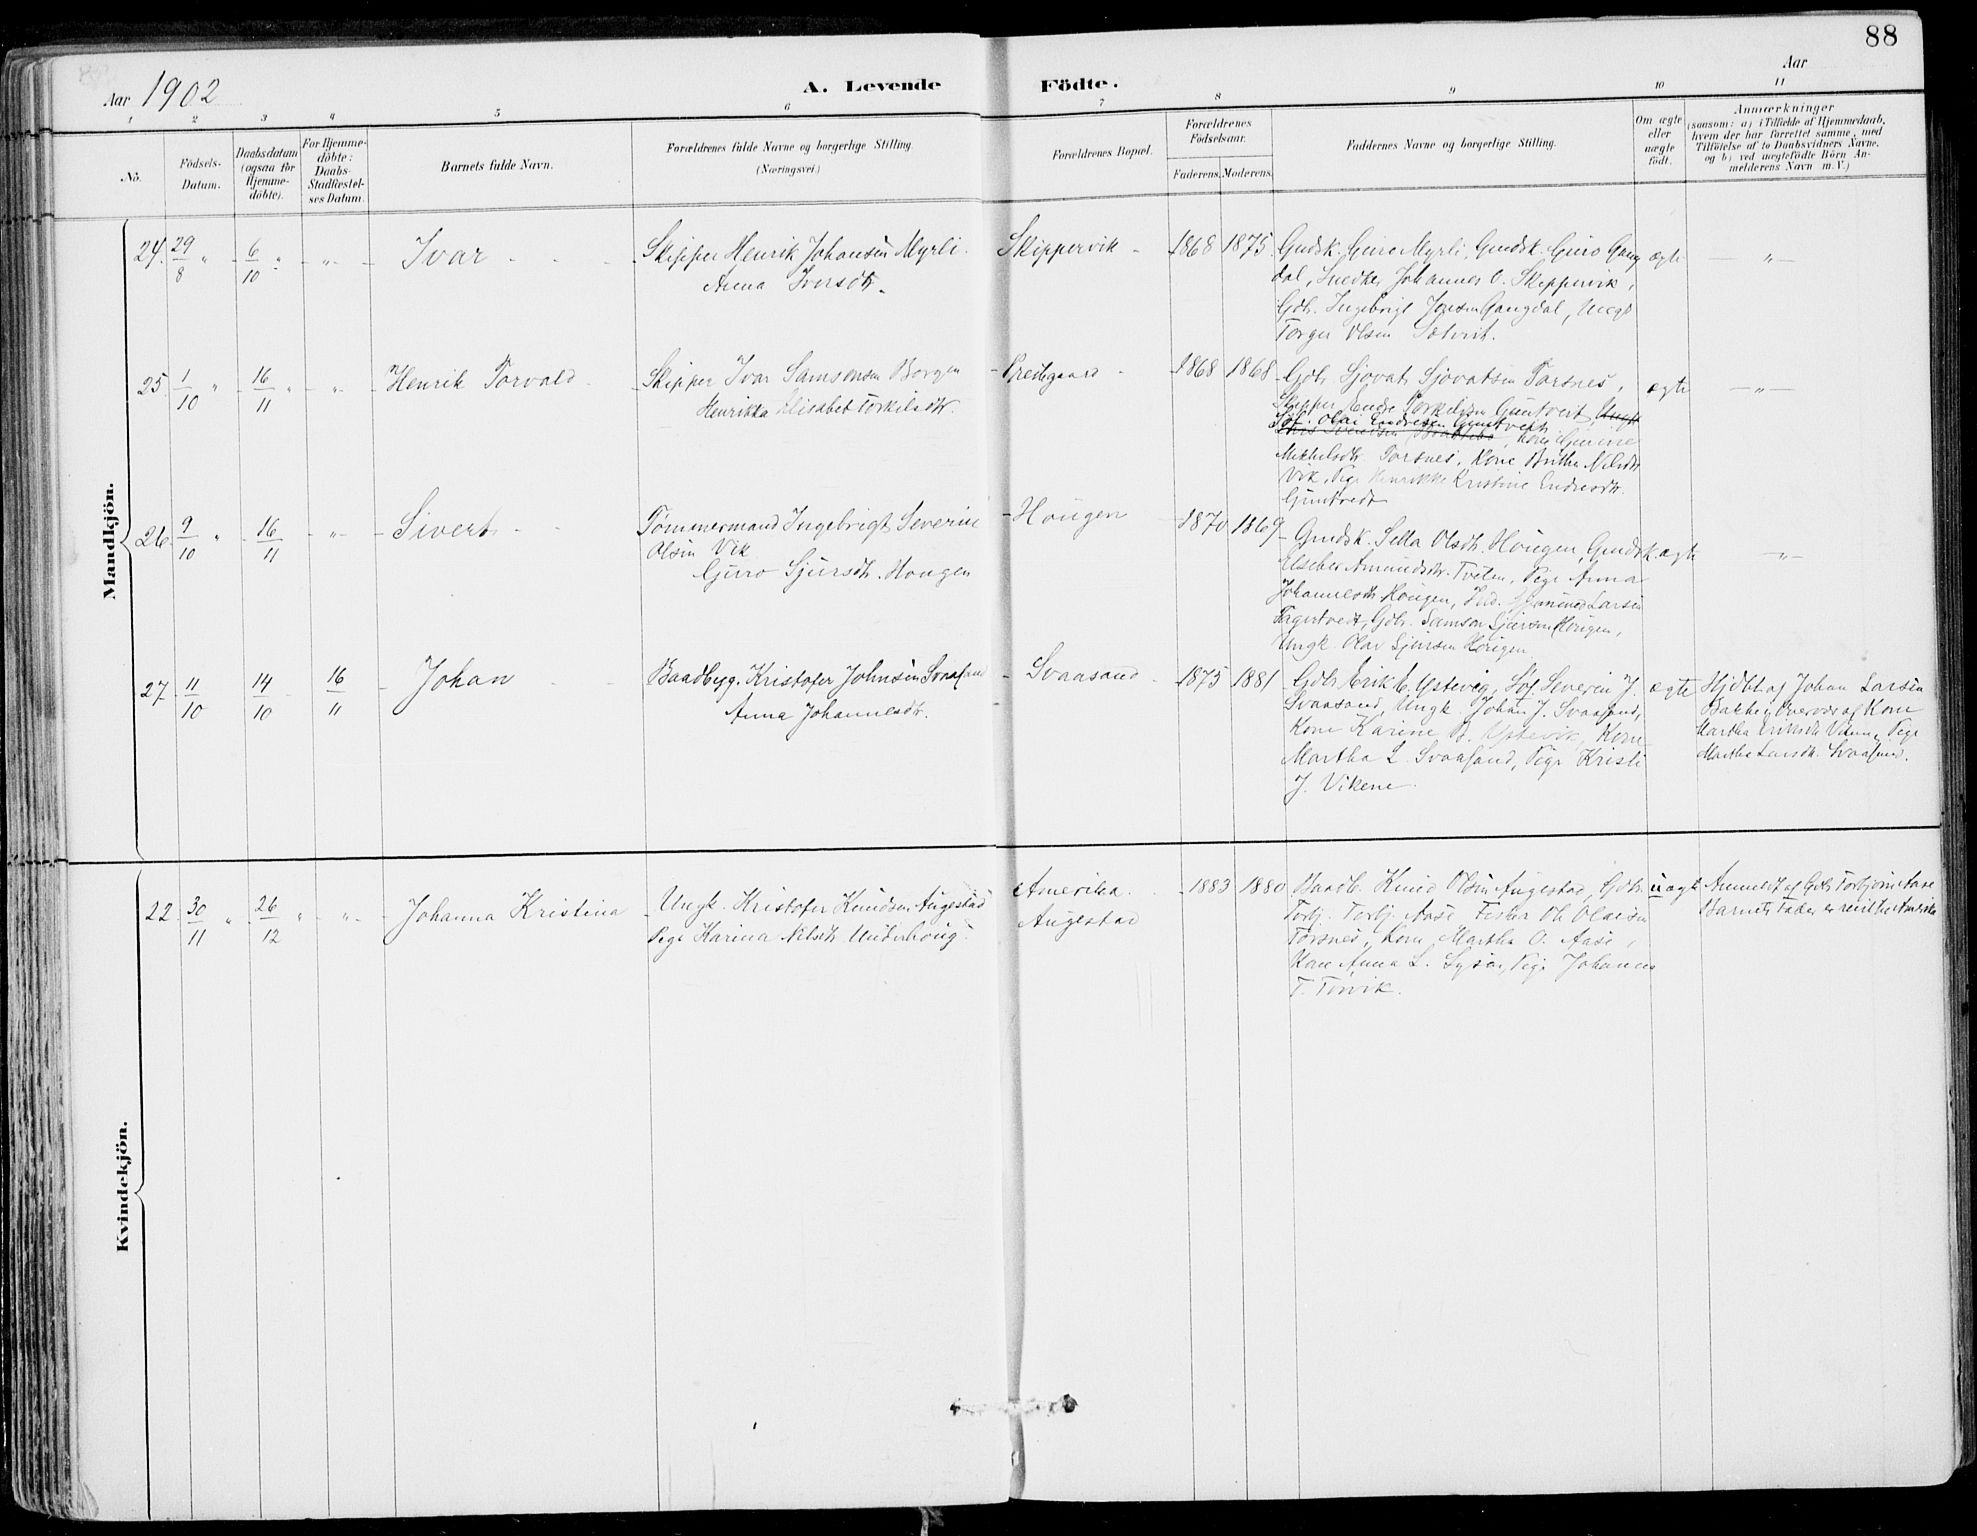 88
Aar 1902
A. Levende Födte.
Aar
1 2 3 4 5 6 7 8 9 10 11
No.
Födsels-
Datum.
Daabsdatum
(ogsaa for
Hjemme-
döbte).
For Hjemme-
döbte:
Daabs-
Stadfestel-
ses Datum.
Barnets fulde Navn.
Forældrenes fulde Navne og borgerlige Stilling.
(Næringsvei.)
Forældrenes Bopæl.
Forældrenes
Födselsaar.
Faderens. Moderens.
Faddernes Navne og borgerlige Stilling.
Om ægte
eller
uægte
födt.
Anmærkninger
(saasom: a) i Tilfælde af Hjemmedaab,
hvem der har forrettet samme, med
Tilföielse af to Daabsvidners Navne,
og b) ved uægtefödte Börn An-
melderens Navn m. V.)
Mandkjön.
24. 29/8 " 6/10 " "
Ivar
Skipper Henrik Johansen Myrli.
Anna Iversdtr.
Skippervik
1868 1875
Gudsk. Guro Myrli, Gmdsk. Guro Gang
dal, Snedker Johannes O. Skippervik,
Gdb. Ingebrigt Jonsen Gangdal, Ungk
Torger Olsen
ægte
"
25 1/10 " 16/11 " "
Henrik Torvald
Skipper Ivar Samsonsen Borgen
Henrikka Elisabet Torkelsdtr.
Prestegaard
1868 1868
Gdb. Sjovat Sjovatsen Torsnes,
Skipper Endre Torkelsen Guntvedt, Ungk
Söf. Olai Endresen Guntvedt
Kone Gurine
Mikkelsdtr. Torsnes, Kone Britha Nilsdtr
Vik, Pige Henrikke Kristine Endresdtr.
Guntvedt
ægte
"
26 9/10 " 16/11 "
Sivert
Tømmermand Ingebrigt Severin
Olsen Vik
Guro Sjursdtr. Hougen
Hougen
1870 1869
Gmdsk. Sella Olsdtr. Hougen, Gmdsk
Elseber Amundsdtr. Tveten, Pige Anna
Johannesdtr Hougen, Larsen
Fagertvedt, Gdb. Samson Sjursen Hougen,
Ungk. Olav Sjursen Hougen
ægte
"
27 11/10 14/10 16/11
Johan
Baadbyg. Kristofer Johnsen Svaasand
Anna Johannesdtr.
Svaasand
1875 1881
Gdb. Erik E. Ystevig, Söf. Severin J.
Svaasand, Ungk. Johan J. Svaasand,
Kone Karine B. Ystevik, Kone
Martha L. Svaasand, Pige Kristi
J. Vikene
ægte
Hjdbt. af Johan Larsen
Bakke, Overvær af Kone
Martha Eriksdtr Vikene, Pige
Martha Larsdtr. Svaasand.
Kvindekjön.
22 30/11 " 26/12 " "
Johanna Kristina
Ungk. Kristofer Knudsen Augestad
Pige Karina Nilsdtr. Underhoug
Amerika
Augestad
1883 1880
Baadb. Knud Olsen Augestad, Gdb.
Torbj. Torbj. Aase, Fisker Ole Olaisen
Torsnes, Kone Martha O. Aase,
Kone Anna L. Lysen, Pige Johanna
T. Torvik.
uægte
Anmeldt af Gdb. Torbjørn Aase
Barnets Fader er reist til Amerika